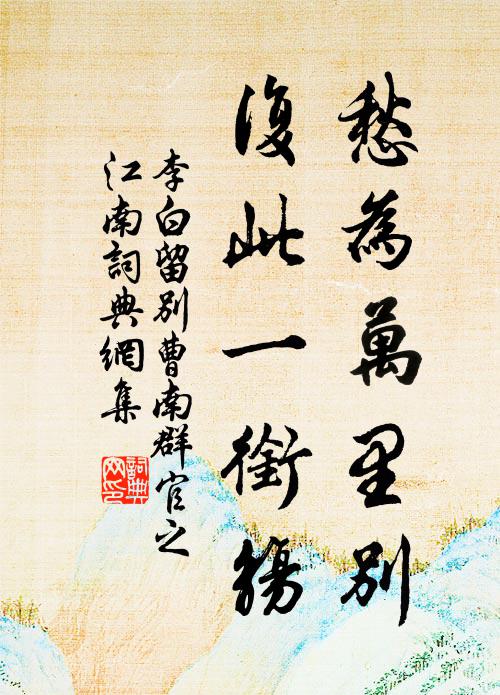 愁為萬里別
復此一銜觴
李白留別曹南群官之
江南詞典網集
詞典
网印